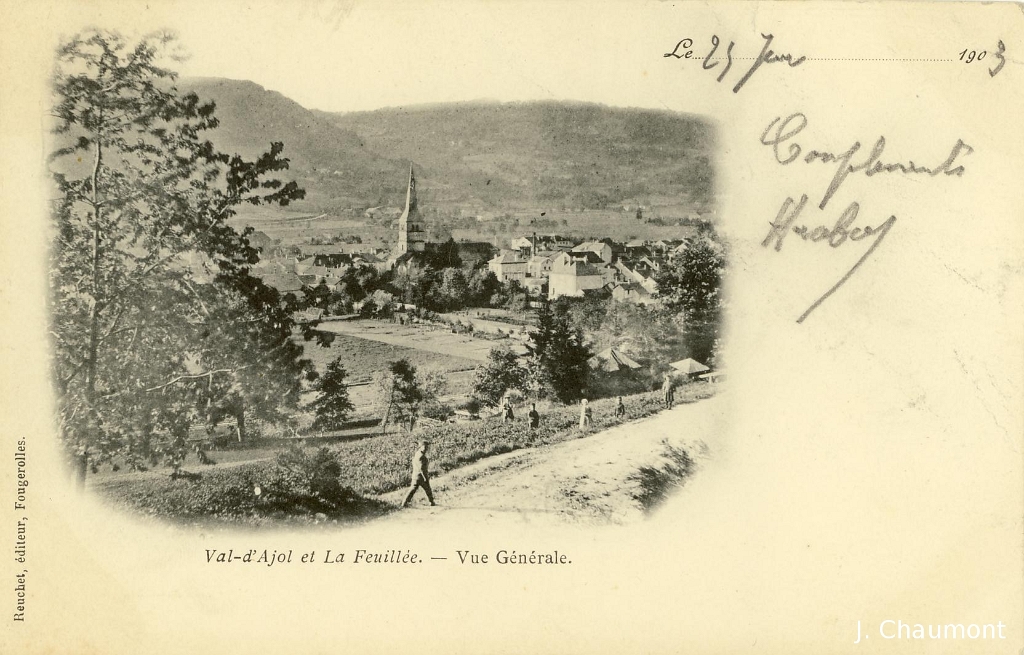 Le 25 1903
Compliments
Val-d'Ajol et La Feuillée. — Vue Générale.
Reuchet, éditeur, Fougerolles.
J. Chaumont